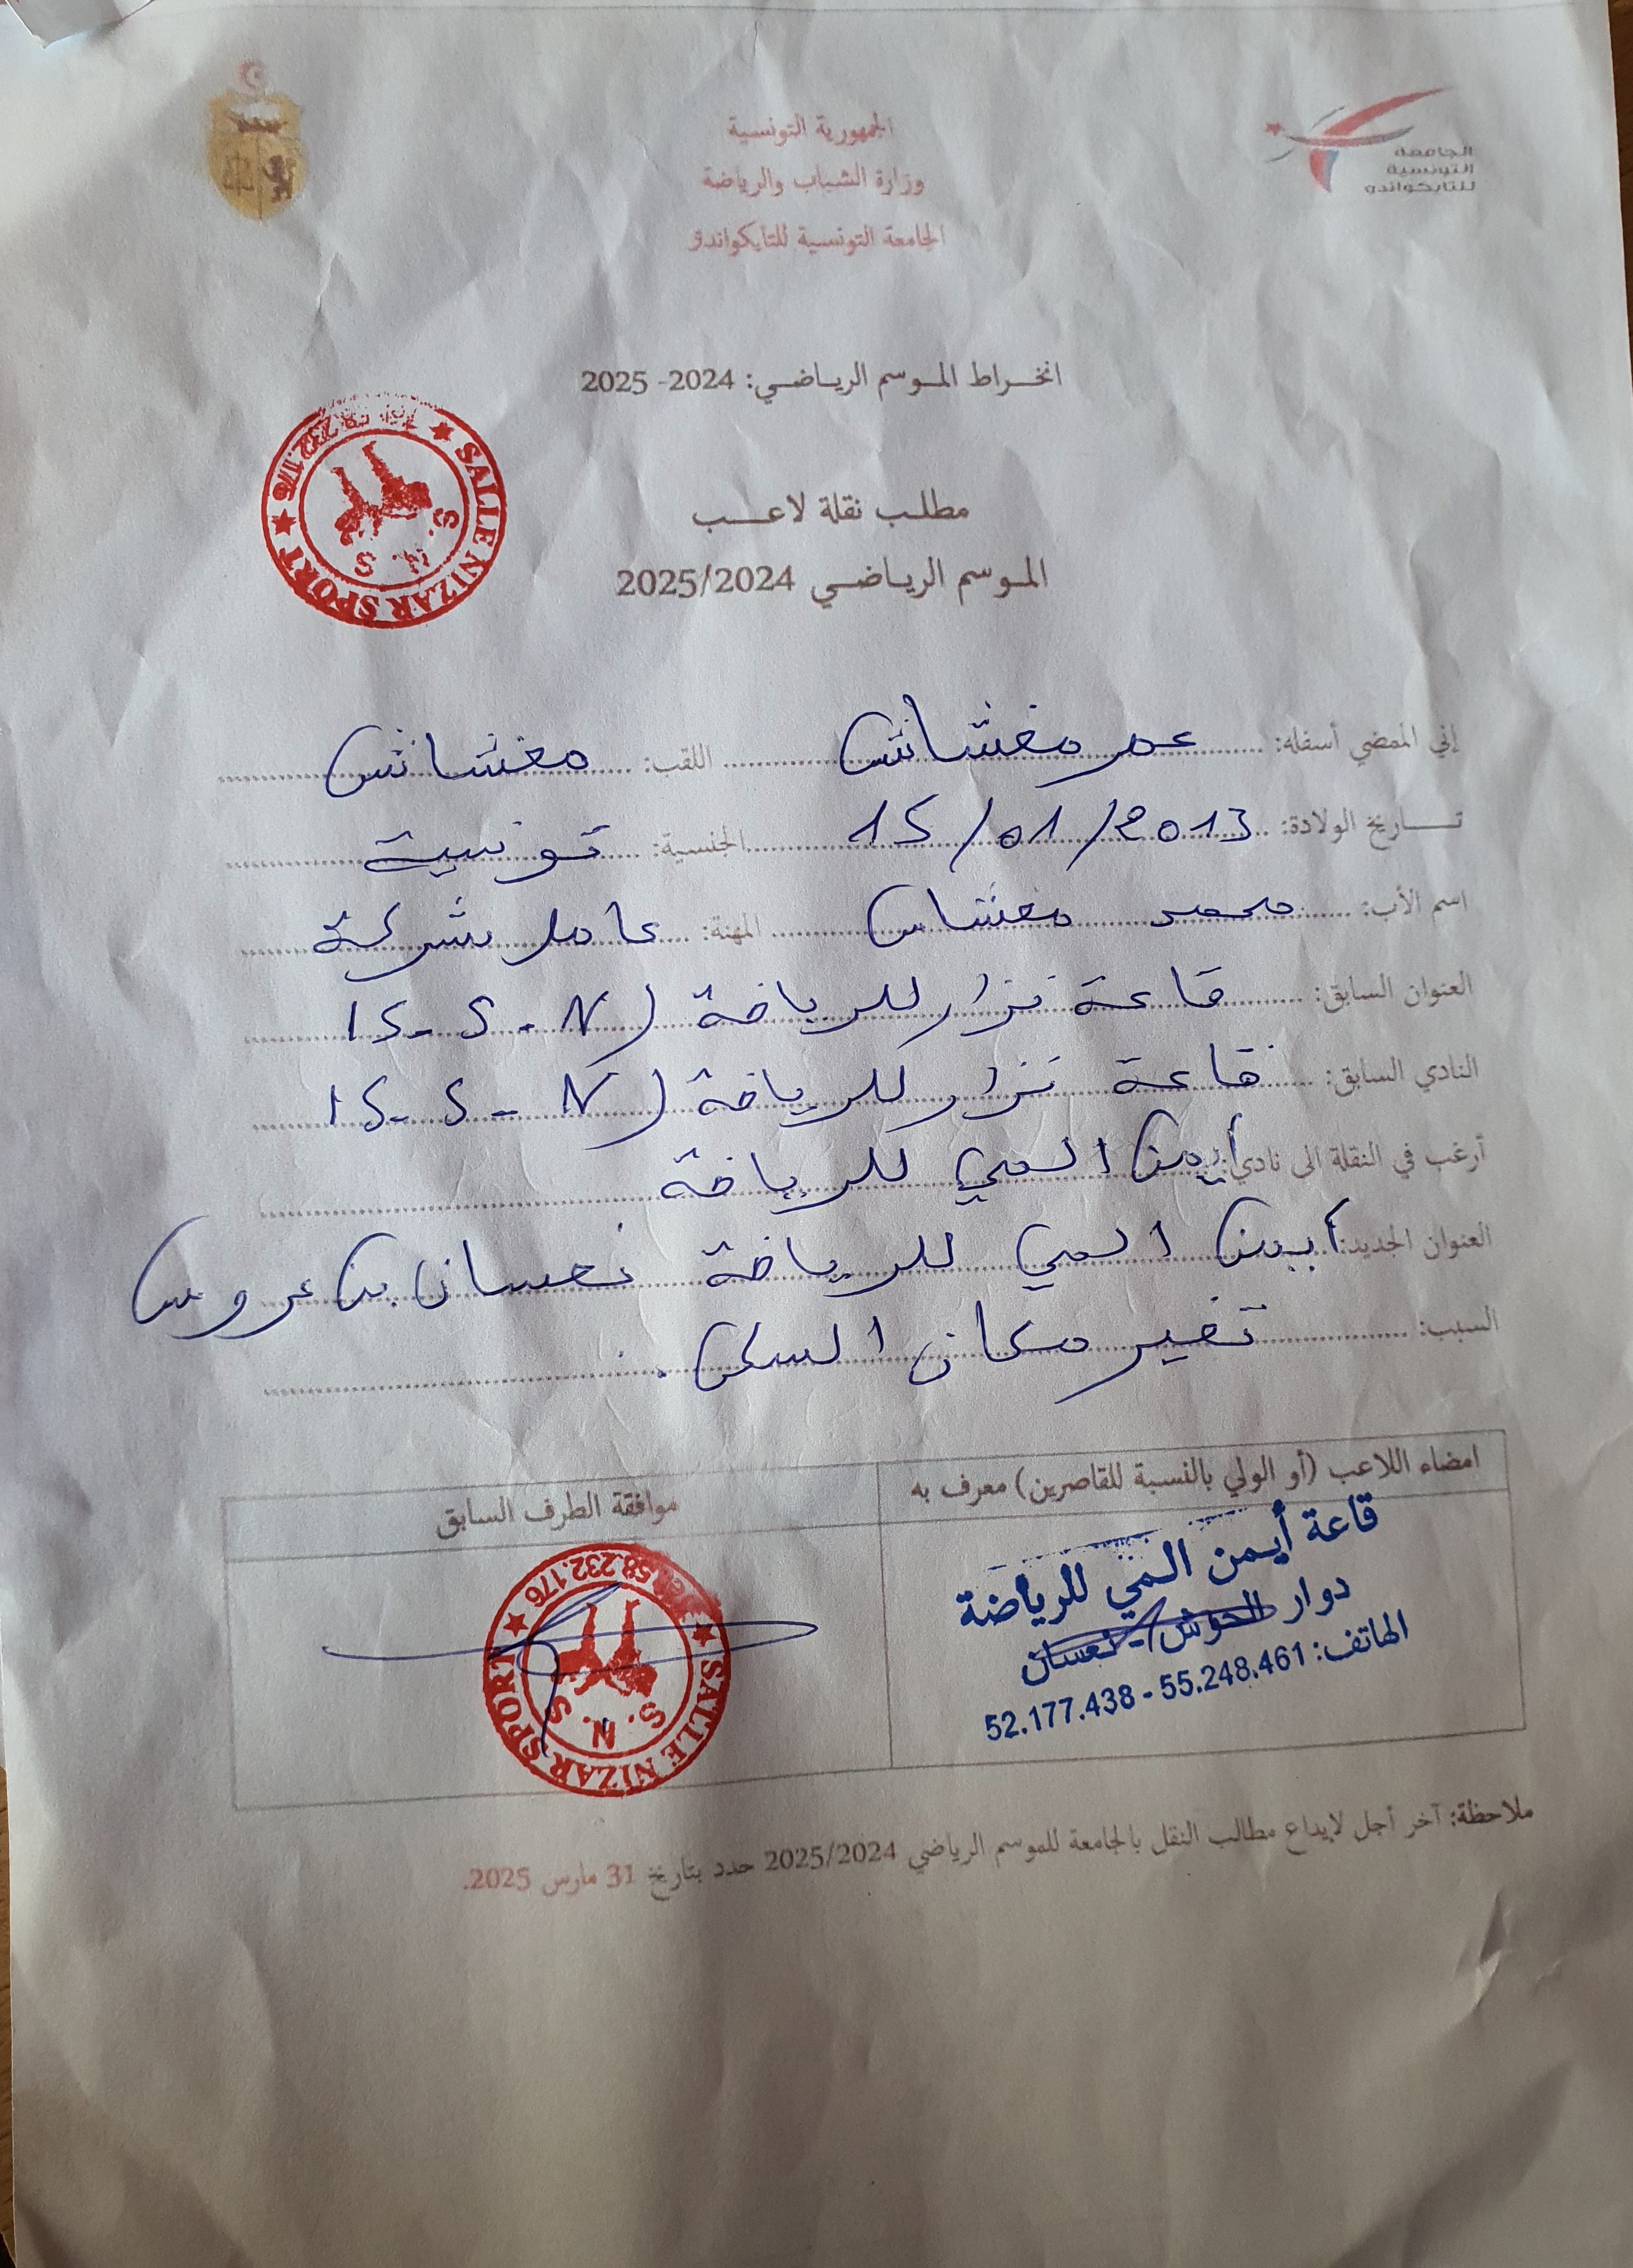 الجمهورية التونسية
وزارة الشباب والرياضة
الجامعة التونسية للتايكواندو
الجامعة
التونسية
للتايكواندو
انخراط الموسم الرياضي: 2024- 2025
SALLE NIZAR SPORT ★ 58.232.176 ★
S. N. S
مطلب نقلة لاعب
الموسم الرياضي 2025/2024
إني الممضي أسفله: عمر مغشاش اللقب: مغشاش
تاريخ الولادة: 15/01/2013 الجنسية: تونسية
اسم الأب: محمد مغشاش المهنة: عامل بشركة
العنوان السابق: قاعة نزار للرياضة (S-S-N)
النادي السابق: قاعة نزار للرياضة (S-S-N)
أرغب في النقلة الى نادي: أيمن المي للرياضة
العنوان الجديد: أيمن المي للرياضة نعسان بن عروس
السبب: تغير مكان السكن.
امضاء اللاعب (أو الولي بالنسبة للقاصرين) معرف به
موافقة الطرف السابق
قاعة أيمن المي للرياضة
دوار الحوش - نعسان
الهاتف: 55.248.461 - 52.177.438
SALLE NIZAR SPORT ★ Tel: 58.232.176 ★
S. N. S
ملاحظة: آخر أجل لإيداع مطالب النقل بالجامعة للموسم الرياضي 2025/2024 حدد بتاريخ 31 مارس 2025.